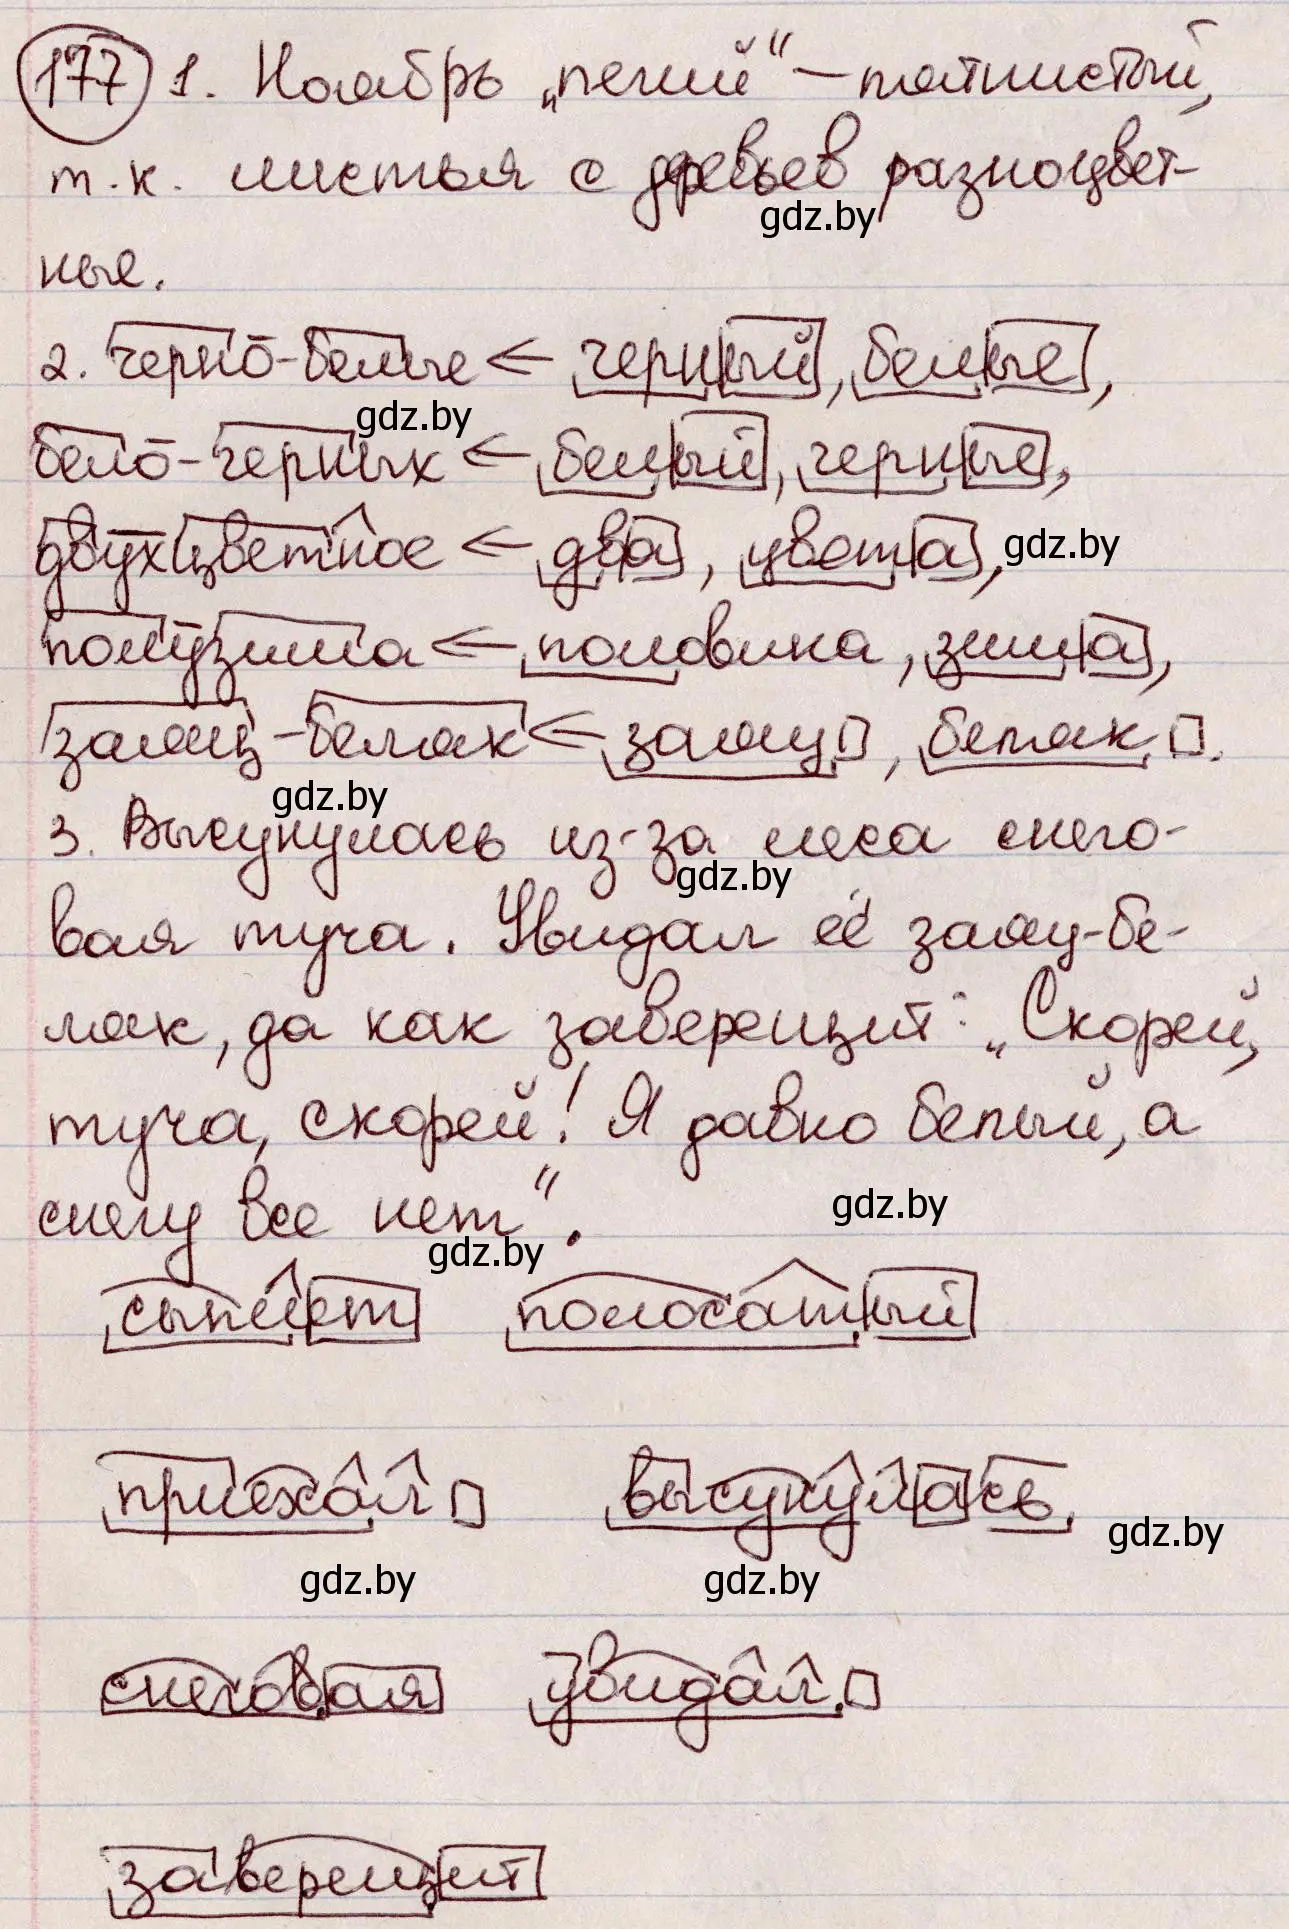 177 1. Ноябрь „пегий“ – пятнистый,
т.к. листья с деревьев разноцвет-
gdz.by
ные.
2. черно-белые ← черный, белые,
gdz.by
бело-черных ← белый, черные,
двухцветное ← два, цвета, gdz.by
полузима ← половина, зима,
заяц-беляк ← заяц, беляк.
gdz.by
3. Высунулась из-за леса снего-
gdz.by
вая туча. Увидал её заяц-бе-
ляк, да как заверещит: „Скорей,
туча, скорей! Я давно белый, а
снегу все нет“.
gdz.by
gdz.by
сыплет полосатый
приехал высунулась
gdz.by
gdz.by gdz.by
снеговая увидал
заверещит